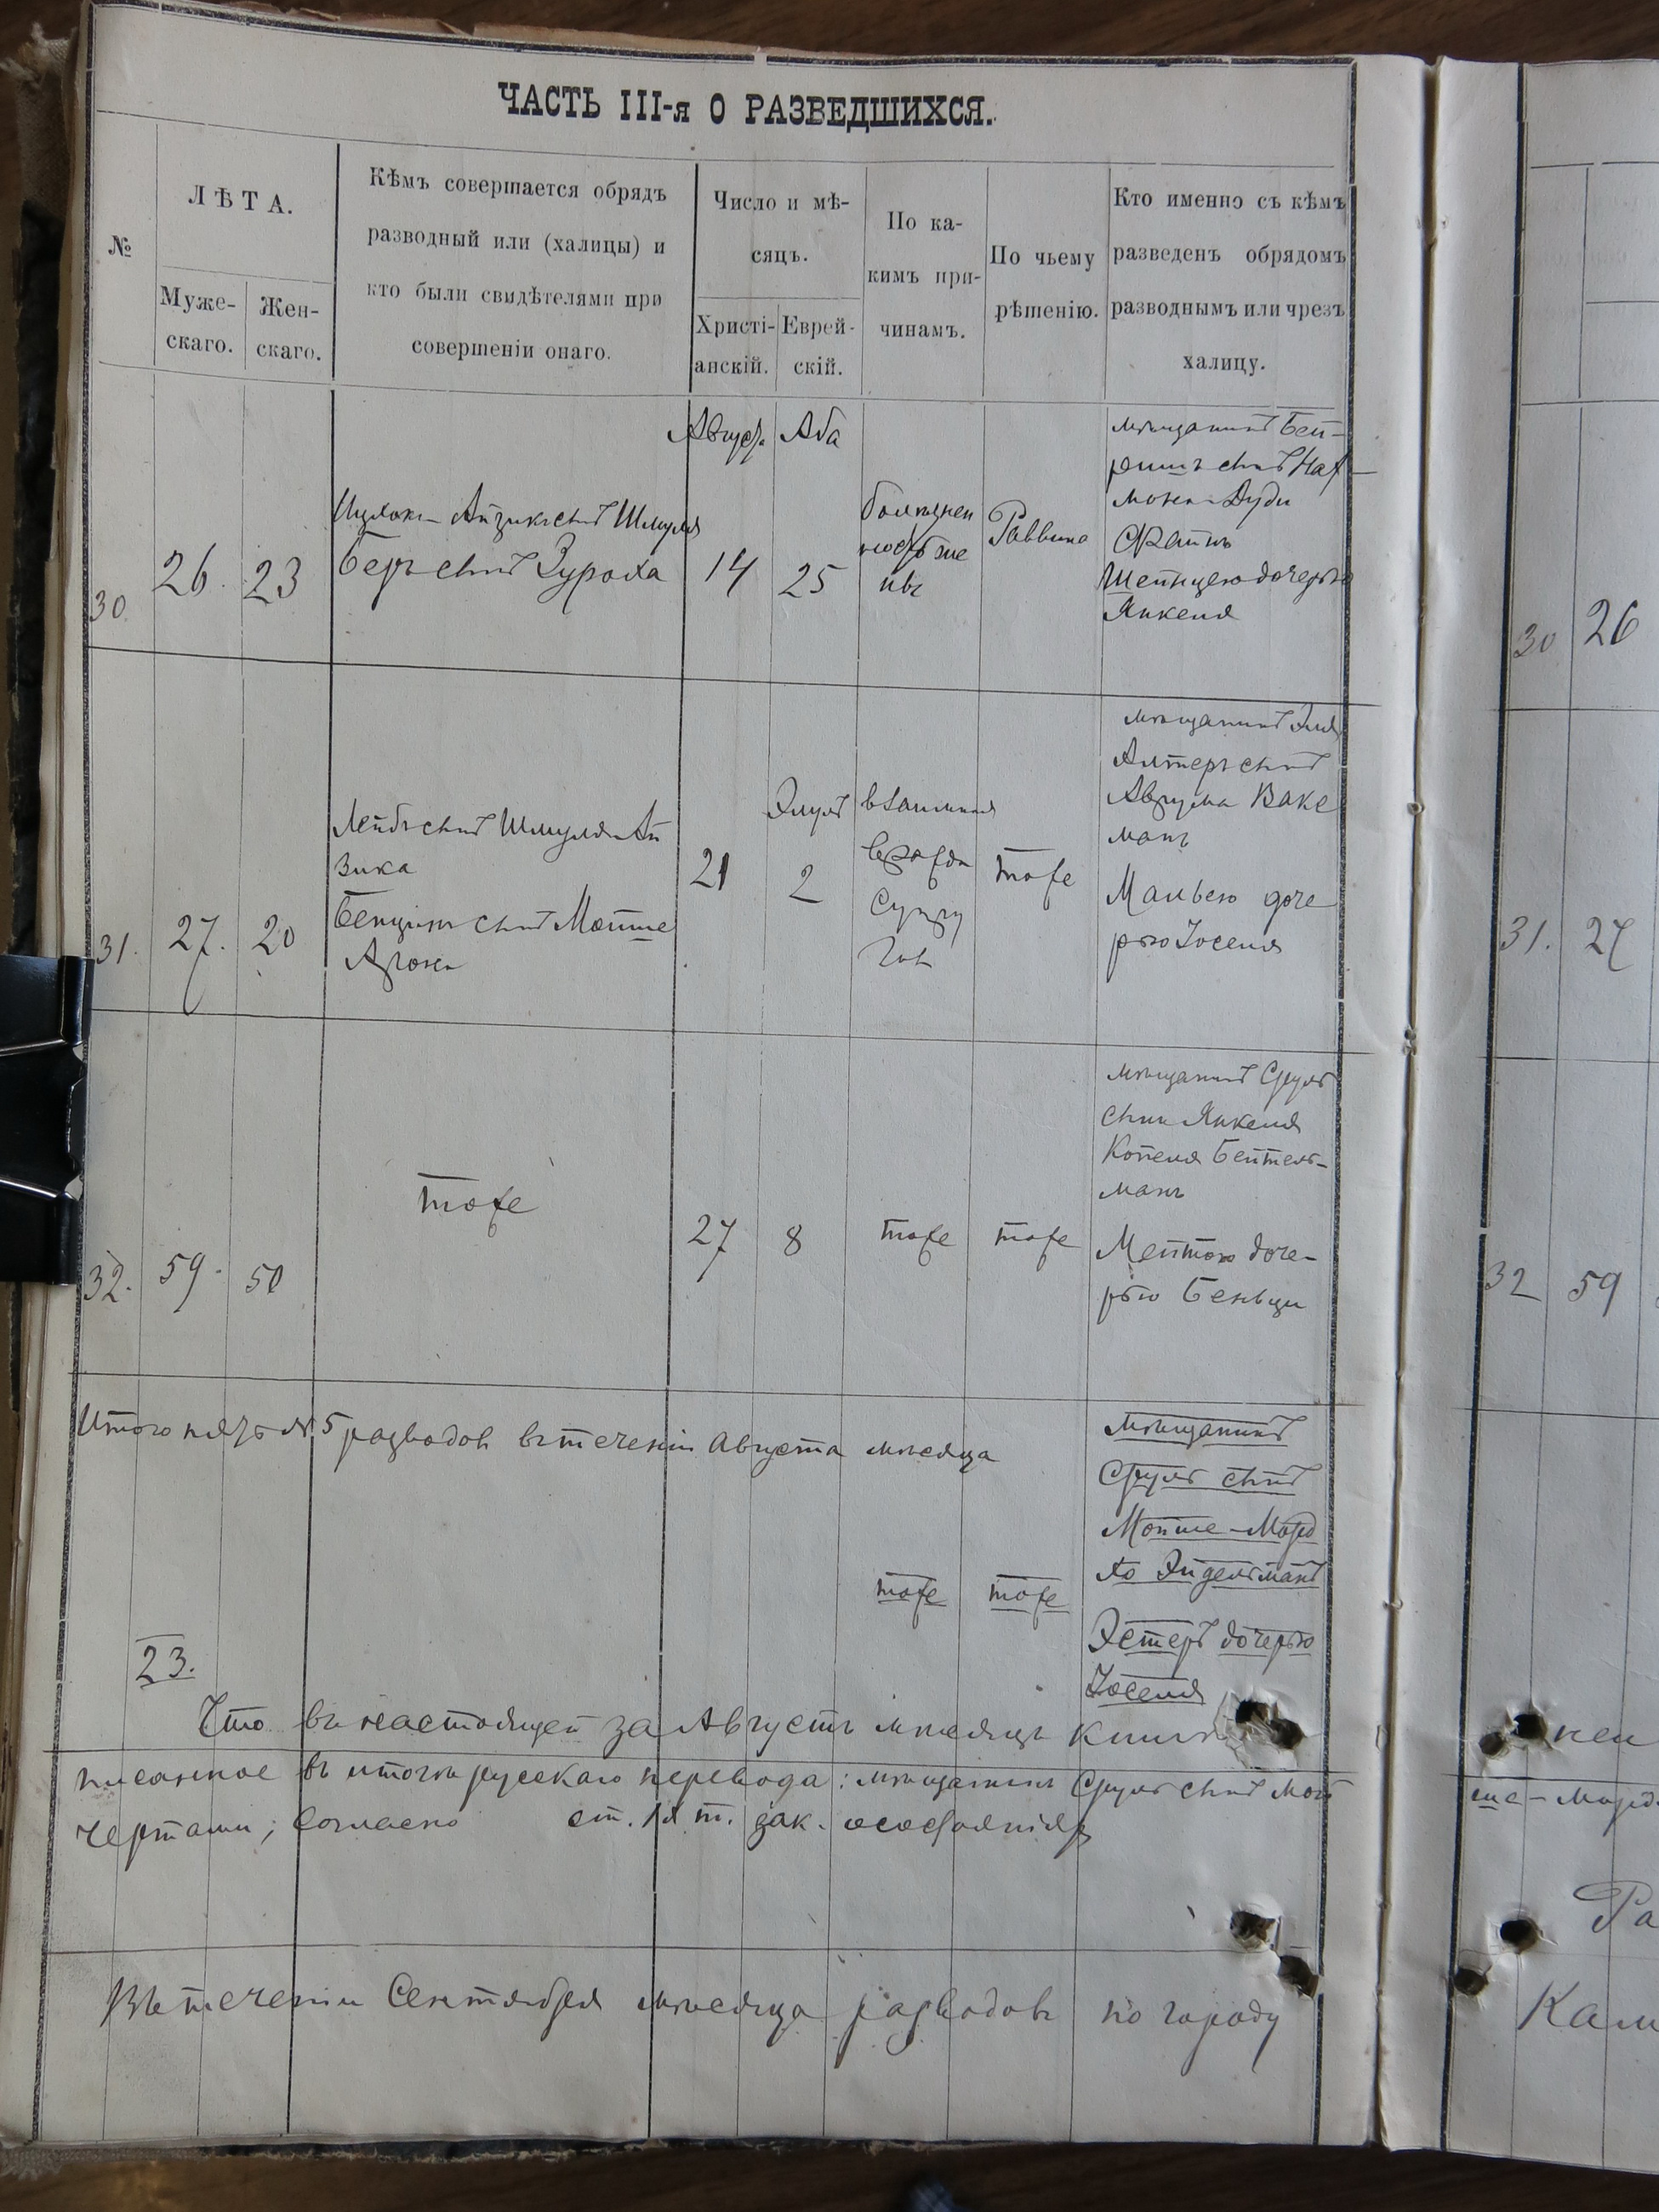 ЧАСТЬ III-я О РАЗВЕДШИХСЯ.
№
ЛѢТА.
Муже-
скаго.
Жен-
скаго.
Кѣмъ совершается обрядъ
разводный или (халицы) и
кто были свидѣтелями при
совершеніи онаго.
Число и мѣ-
сяцъ.
Христі-
анскій.
Еврей-
скій.
По ка-
кимъ при-
чинамъ.
По чьему
рѣшенію.
Кто именно съ кѣмъ
разведенъ обрядомъ
разводнымъ или чрезъ
халицу.
30
26.
23
Ицхокъ-Айзикъ сынъ Шмуля
Беръ сынъ Зураха
Август.
14
Аба
25
болѣзнен
ность же
ны
Раввина
мѣщанинъ Бей-
ришъ сынъ Нах-
мона-Дуди
Шейндею дочерью
Янкеля
31.
27.
20
Лейбъ сынъ Шмуля-Ай
зика
Бенционъ сынъ Мойше
Арона
21
Элулъ
2
взаимная
вражда
супру
говъ
тоже
мѣщанинъ Эля
Алтеръ сынъ
Аврума Ваксе
манъ
Мальею доче
рью Иоселя
32.
59.
50
тоже
27
8
тоже
тоже
мѣщанинъ Сруль
сынъ Янкеля
Копеля Бейтель-
манъ
Мейтою доче-
рью Беньци
Итого пять № 5 разводовъ въ теченіи Августа мѣсяца
мѣщанинъ
Сруль сынъ
Мойше-Мордко
Эйдельманъ
тоже
тоже
Эстеръ дочерью
Иоселя
23.
Что въ настоящей за Августъ мѣсяцъ книгѣ
писанное въ итогѣ русскаго перевода: мѣщанинъ Сруль сынъ Мой
чертами, согласно ст. IX т. зак. о состояніяхъ
Въ теченіи Сентября мѣсяца разводовъ по городу
30
26
31.
27
32
59
ше-Мордко
Ра
Кам